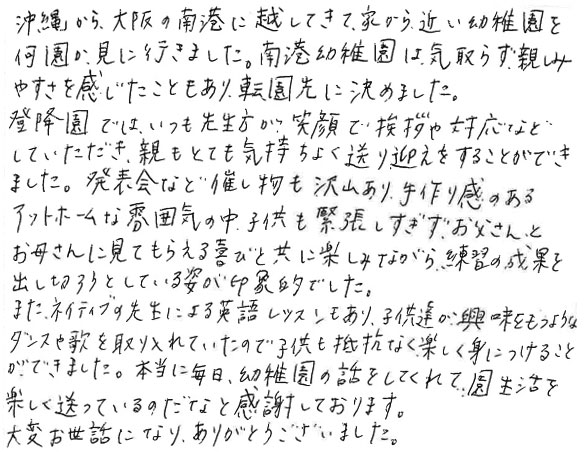 沖縄から、大阪の南港に越してきて、家から近い幼稚園を
何園か見に行きました。南港幼稚園は気取らず、親しみ
やすさを感じたこともあり、転園先に決めました。
登降園では、いつも先生方が笑顔で挨拶や対応など
していただき、親もとても気持ちよく送り迎えをすることができ
ました。発表会など催し物も沢山あり、手作り感のある
アットホームな雰囲気の中、子供も緊張しすぎず、お父さんと
お母さんに見てもらえる喜びと共に楽しみながら、練習の成果を
出し切ろうとしている姿が印象的でした。
また、ネイティブの先生による英語レッスンもあり、子供達が興味をもつような
ダンスや歌を取り入れていたので子供も抵抗なく楽しく身につけること
ができました。本当に毎日、幼稚園の話をしてくれて、園生活を
楽しく送っているのだなと感謝しております。
大変お世話になり、ありがとうございました。